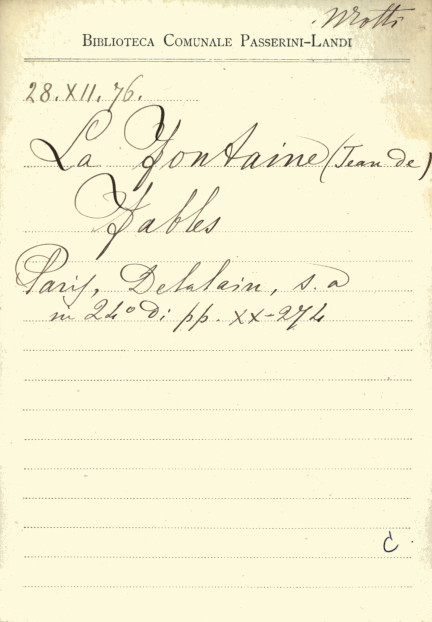 Motti
BIBLIOTECA COMUNALE PASSERINI-LANDI
28.XII.76.
La Fontaine (Jean de)
Fables
Paris, Delalain, s. a
in 24° di pp. XX-274
C